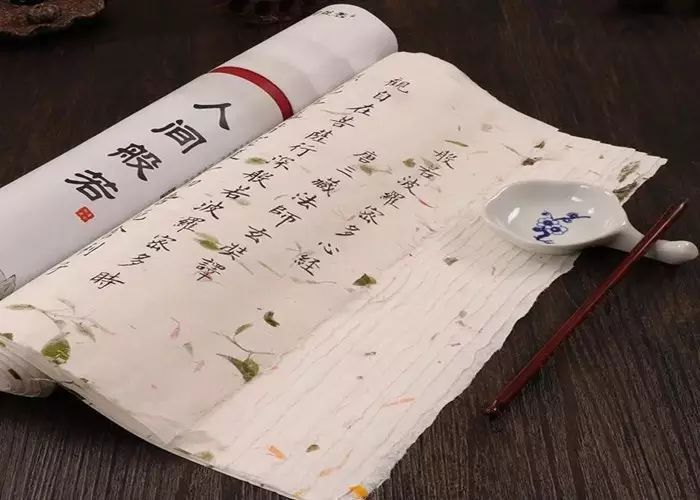 般若波羅密多心經
唐三藏法師玄奘譯
觀自在菩薩行深般若波羅密多時
人间般若